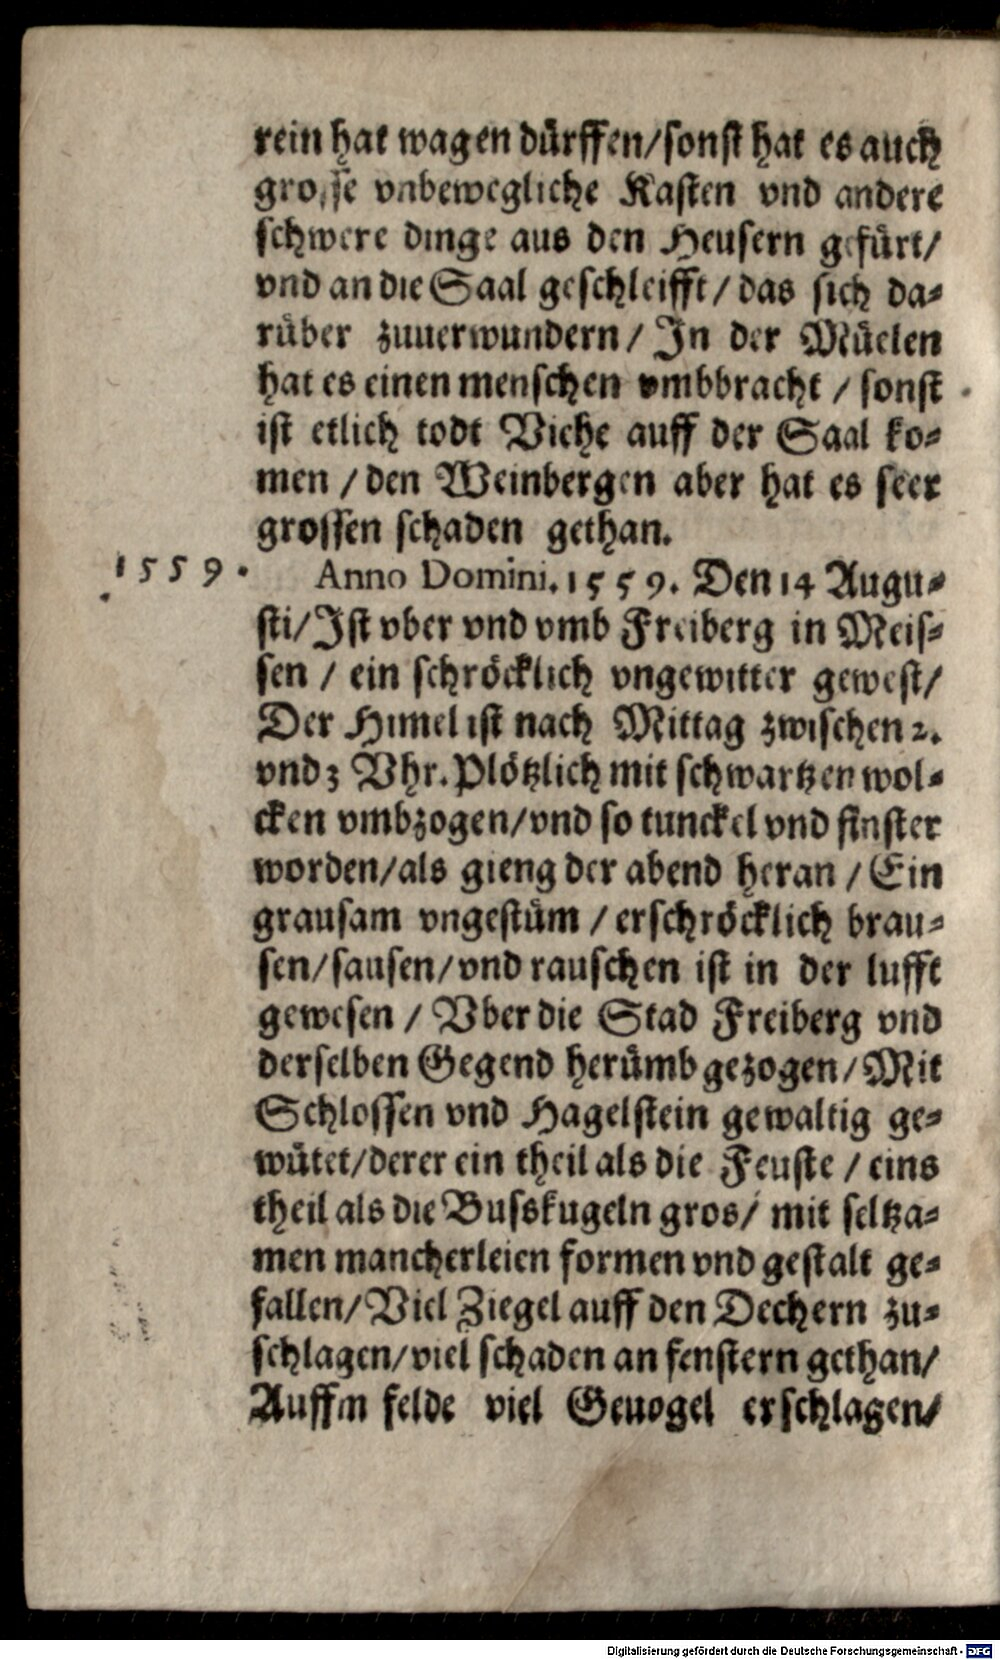 rein hat wagen dürffen/sonst hat es auch
grosse vnbewegliche Kasten vnd andere
schwere dinge aus den Heusern gefürt/
vnd an die Saal geschleifft/das sich da-
rüber zuuerwundern/In der Müelen
hat es einen menschen vmbbracht/sonst
ist etlich todt Viehe auff der Saal ko-
men/den Weinbergen aber hat es seer
grossen schaden gethan.
1559. Anno Domini.1559. Den 14 Augu-
sti/Ist vber vnd vmb Freiberg in Meis-
sen/ein schröcklich vngewitter gewest/
Der Himel ist nach Mittag zwischen 2.
vnd 3 Vhr. Plötzlich mit schwartzen wol-
cken vmbzogen/vnd so tunckel vnd finster
worden/als gieng der abend heran/Ein
grausam vngestüm/erschröcklich brau-
sen/sausen/vnd rauschen ist in der lufft
gewesen/Vber die Stad Freiberg vnd
derselben Gegend herümb gezogen/Mit
Schlossen vnd Hagelstein gewaltig ge-
wütet/derer ein theil als die Feuste/eins
theil als die Busskugeln gros/mit seltza-
men mancherleien formen vnd gestalt ge-
fallen/Viel Ziegel auff den Dechern zu-
schlagen/viel schaden an fenstern gethan/
Auffm felde viel Geuogel erschlagen/
Digitalisierung gefördert durch die Deutsche Forschungsgemeinschaft - DFG